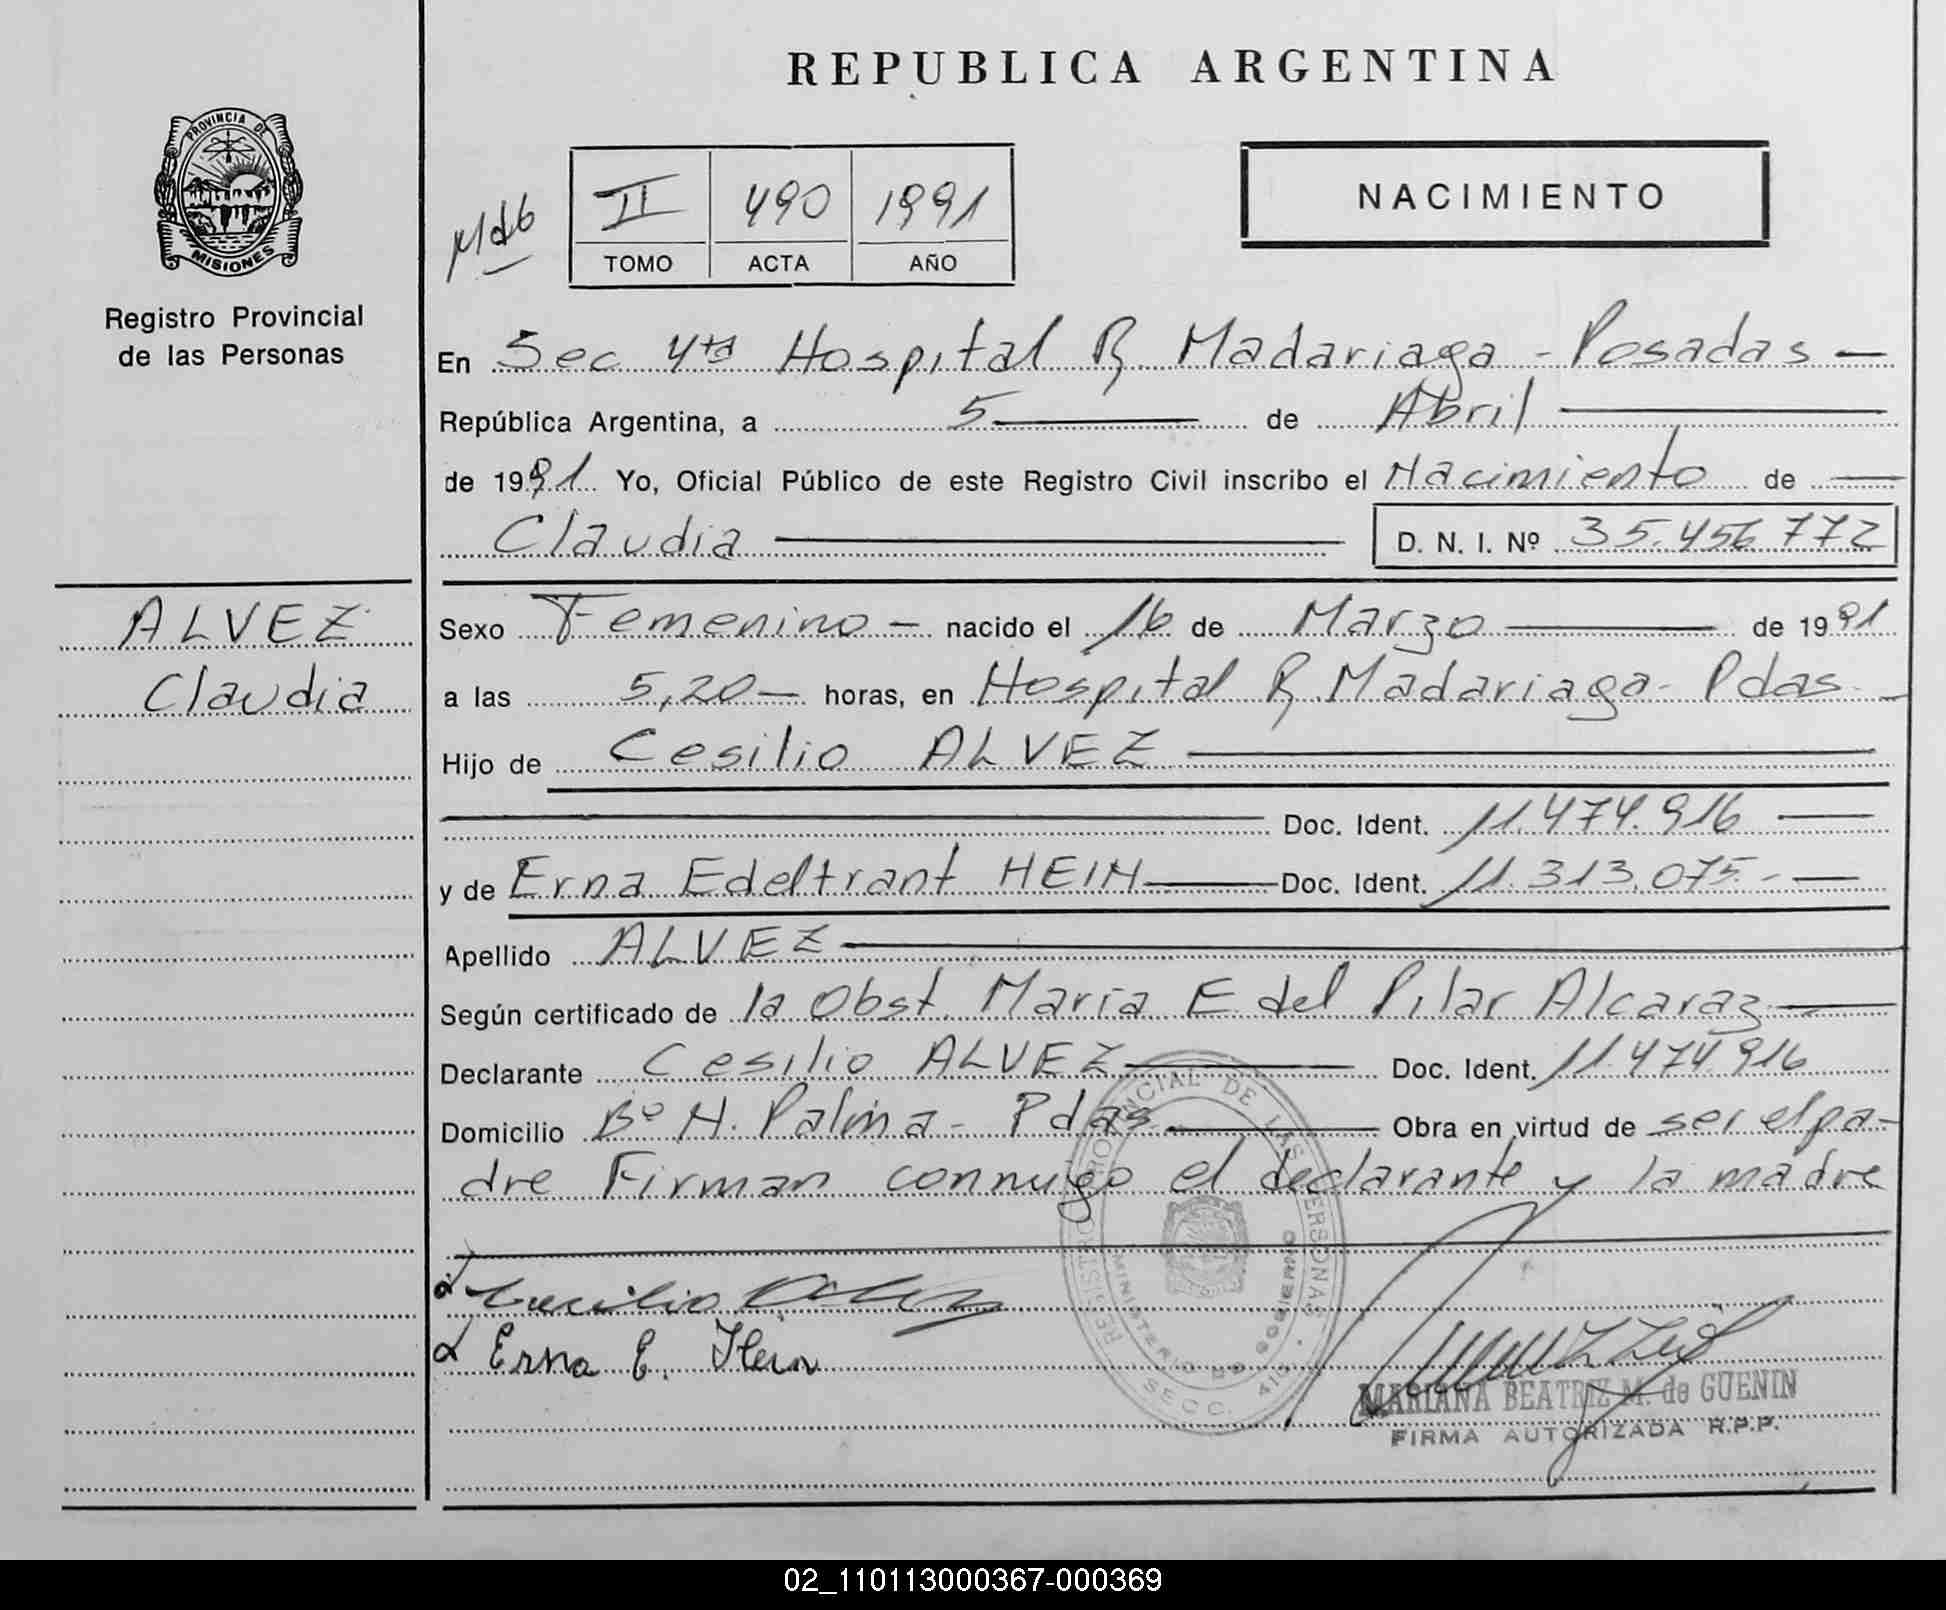 REPUBLICA ARGENTINA
PROVINCIA DE
MISIONES
Registro Provincial
de las Personas
II 490 1991
TOMO ACTA AÑO
NACIMIENTO
En Sec 4ta Hospital R. Madariaga - Posadas —
República Argentina, a 5 de Abril
de 1991 Yo, Oficial Público de este Registro Civil inscribo el Nacimiento de —
Claudia D. N. I. Nº 35.456.772
ALVEZ
Claudia
Sexo Femenino — nacido el 16 de Marzo de 1991
a las 5,20 — horas, en Hospital R. Madariaga - Pdas. —
Hijo de Cesilio ALVEZ
Doc. Ident. 11.474.916 —
y de Erna Edeltrant HEIN — Doc. Ident. 11.313.075 - —
Apellido ALVEZ
Según certificado de la Obst. Maria E. del Pilar Alcaraz —
Declarante Cesilio ALVEZ — Doc. Ident. 11.474.916
Domicilio Bº H. Palma - Pdas — Obra en virtud de ser el pa-
dre Firman conmigo el declarante y la madre
REGISTRO PROVINCIAL DE LAS PERSONAS
MINISTERIO DE GOBIERNO
SECC. 4ta
Erna E. Hein
MARIANA BEATRIZ M. de GUENIN
FIRMA AUTORIZADA R.P.P.
02_110113000367-000369